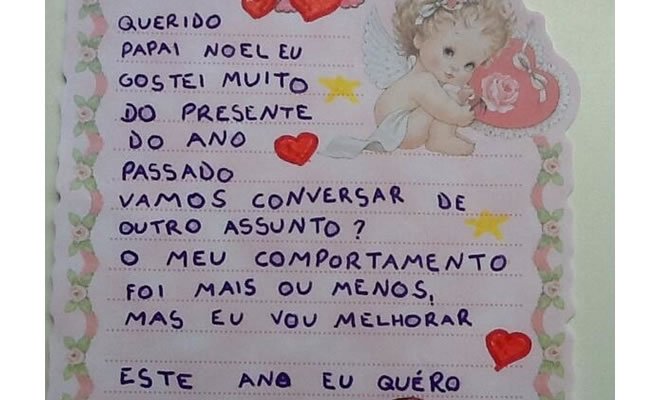 QUERIDO
PAPAI NOEL EU
GOSTEI MUITO
DO PRESENTE
DO ANO
PASSADO
VAMOS CONVERSAR DE
OUTRO ASSUNTO?
O MEU COMPORTAMENTO
FOI MAIS OU MENOS,
MAS EU VOU MELHORAR
ESTE ANO EU QUÉRO